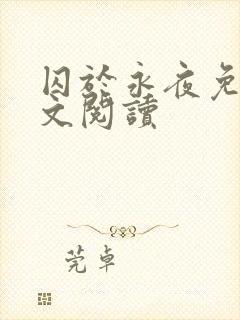 囚於永夜免
文閱讀
莞卓